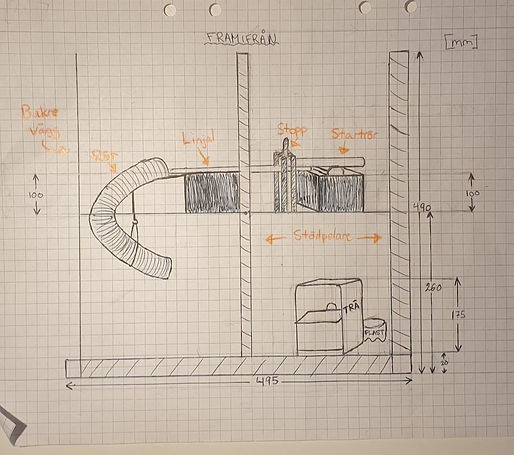 FRAMIFRÅN
[mm]
Bakre
vägg
Rör
Linjal
Stopp
Startrör
100
100
490
Stödpelare
260
175
TRÄ
PLAST
20
495